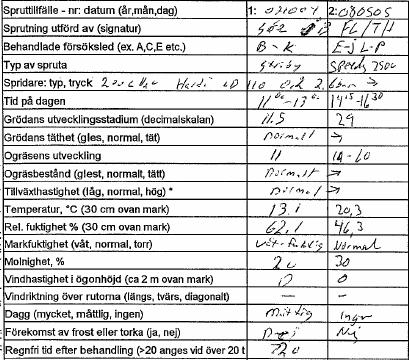 Spruttillfälle - nr: datum (år,mån,dag) 1: 2:080505
Sprutning utförd av (signatur) FL/TH
Behandlade försöksled (ex. A,C,E etc.) B-K E-J L-P
Typ av spruta
Spridare: typ, tryck Hardi LD 110
Tid på dagen 11 00 -13 0. 14 15 -16 30
Grödans utvecklingsstadium (decimalskalan) 11.5 29
Grödans täthet (gles, normal, tät) Normalt →
Ogräsens utveckling 11 14-60
Ogräsbestånd (glest, normalt, tätt) Normalt →
Tillväxthastighet (låg, normal, hög) * Normal →
Temperatur, °C (30 cm ovan mark) 13.1 20,3
Rel. fuktighet % (30 cm ovan mark) 62,1 46,3
Markfuktighet (våt, normal, torr) Normal
Molnighet, % 20 30
Vindhastighet i ögonhöjd (ca 2 m ovan mark) 0 0
Vindriktning över rutorna (längs, tvärs, diagonalt) - -
Dagg (mycket, måttlig, ingen) Måttlig Ingen
Förekomst av frost eller torka (ja, nej) Nej Nej
Regnfri tid efter behandling (>20 anges vid över 20 t >20